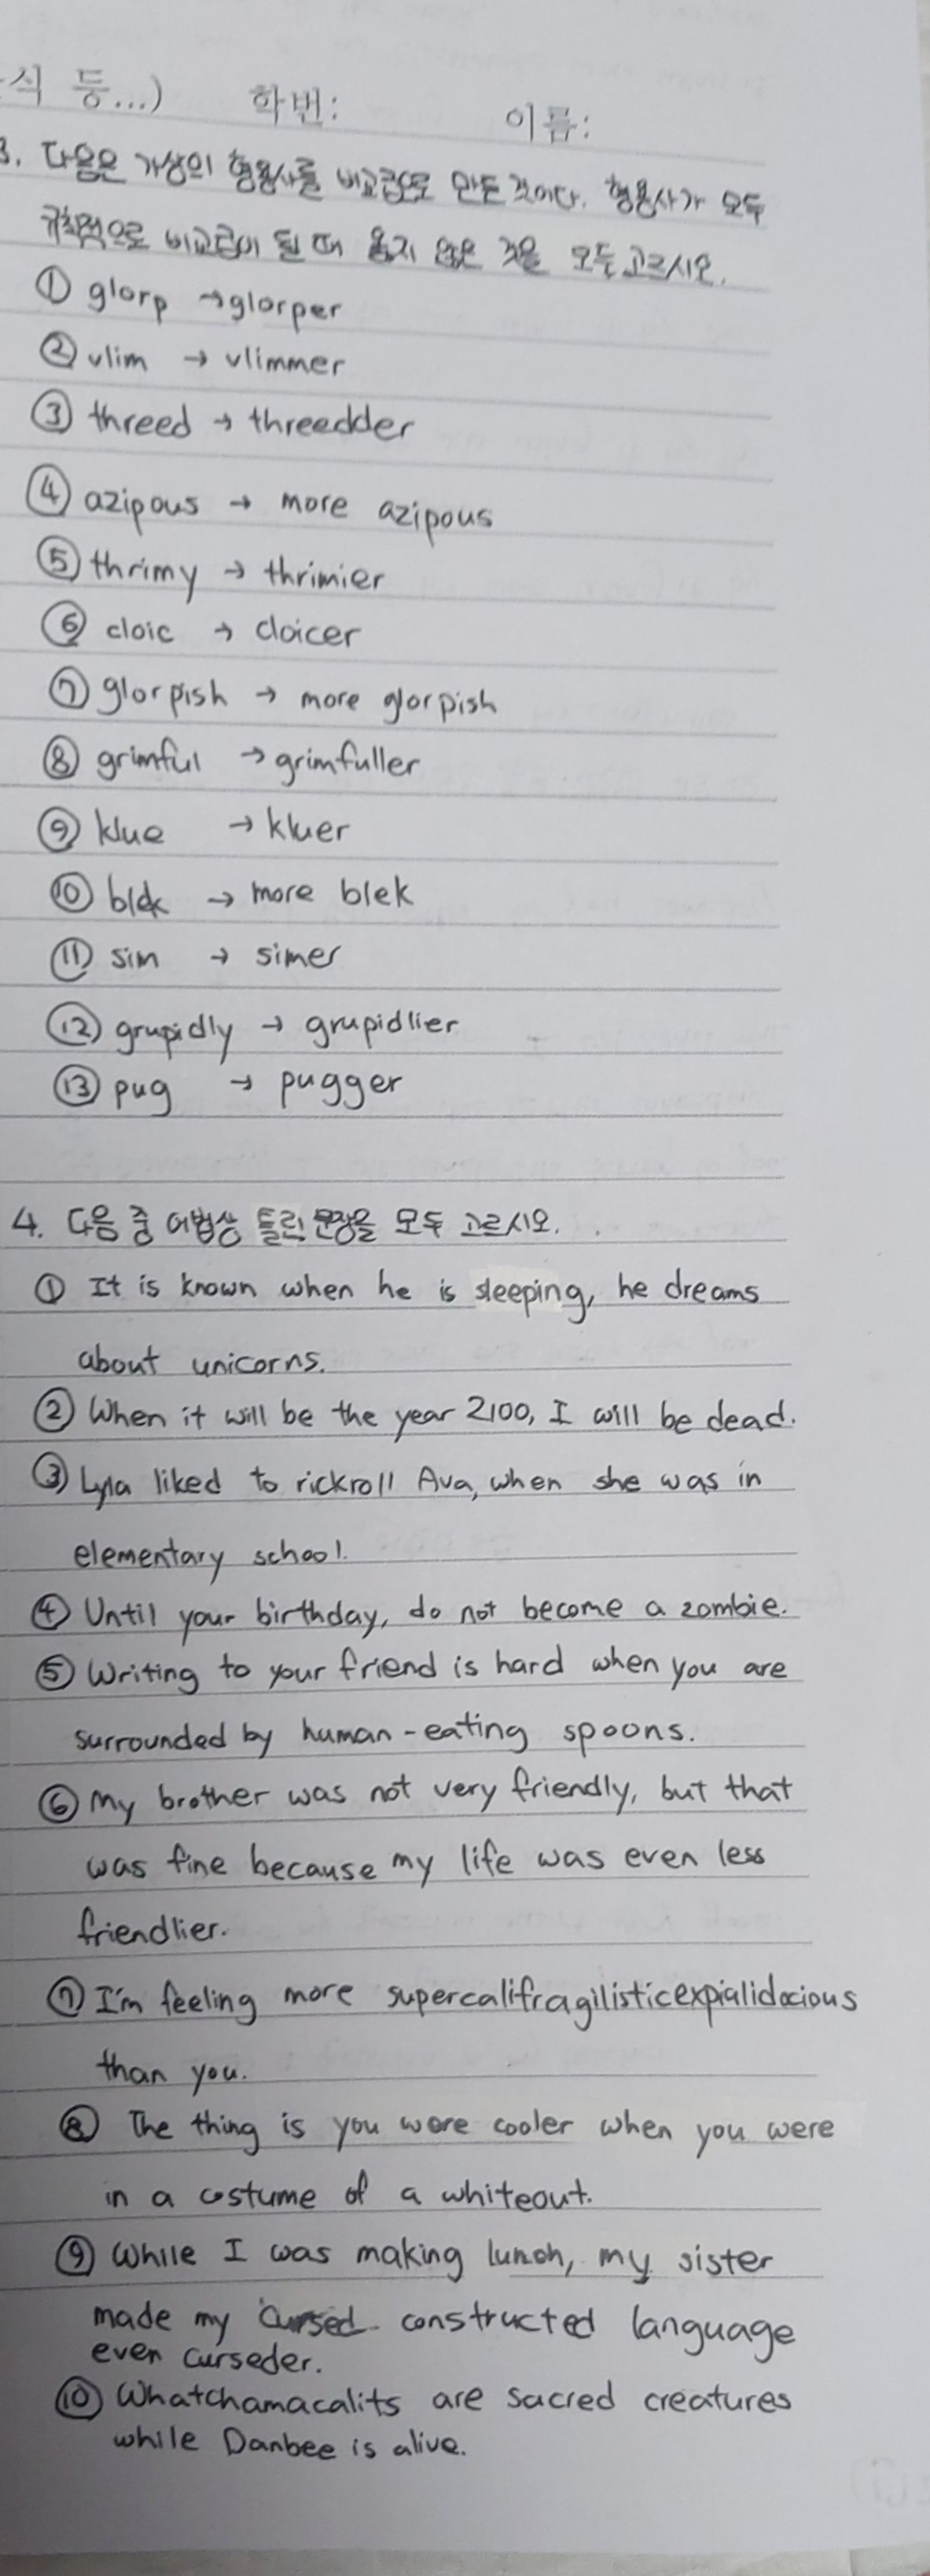 식 등...) 학번: 이름:
3. 다음은 가상의 형용사를 비교급으로 만든 것이다. 형용사가 모두
규칙적으로 비교급이 될 때 옳지 않은 것을 모두 고르시오.
① glorp → glorper
② vlim → vlimmer
③ threed → threedder
④ azipous → more azipous
⑤ thrimy → thrimier
⑥ cloic → cloicer
⑦ glorpish → more glorpish
⑧ grimful → grimfuller
⑨ klue → kluer
⑩ blek → more blek
⑪ sim → simer
⑫ grupidly → grupidlier
⑬ pug → pugger
4. 다음 중 어법상 틀린 문장을 모두 고르시오.
① It is known when he is sleeping, he dreams
about unicorns.
② When it will be the year 2100, I will be dead.
③ Lyla liked to rickroll Ava, when she was in
elementary school.
④ Until your birthday, do not become a zombie.
⑤ Writing to your friend is hard when you are
surrounded by human-eating spoons.
⑥ My brother was not very friendly, but that
was fine because my life was even less
friendlier.
⑦ I'm feeling more supercalifragilisticexpialidocious
than you.
⑧ The thing is you were cooler when you were
in a costume of a whiteout.
⑨ While I was making lunch, my sister
made my cursed constructed language
even curseder.
⑩ Whatchamacalits are sacred creatures
while Danbee is alive.